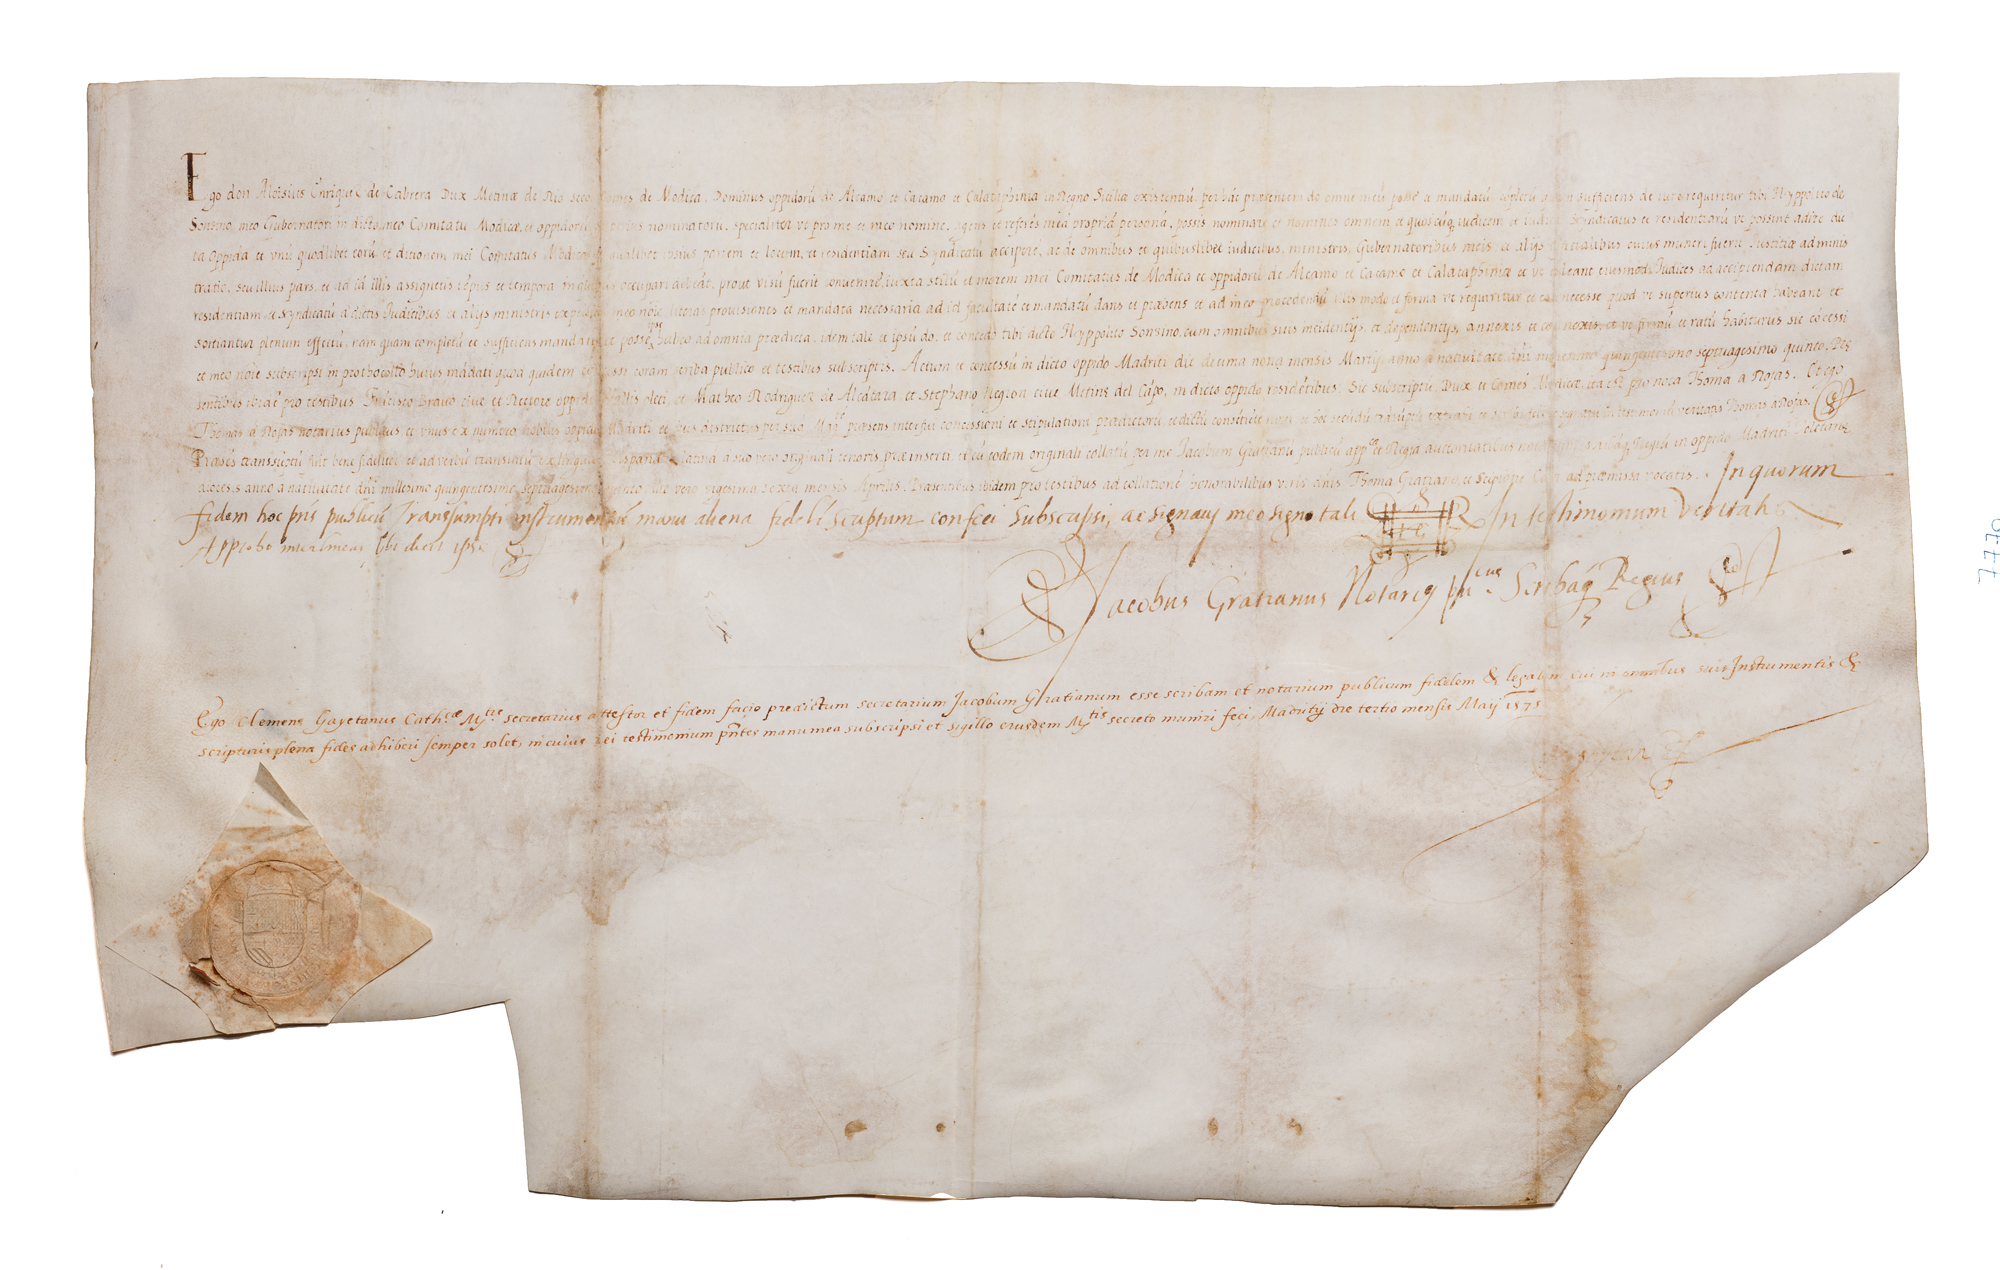 Ego don Aloisius Enriquez de Cabrera Dux Metinæ de Rio seco Comes de Modica. Dominus oppidorũ de Alcamo et Cacamo et Calatapsinia in Regno Siciliæ existentiũ, per hãc præsentem do omne meũ posse et mandatũ sufficiens de iure requiritur tibi Hyppolito de
Sonsino meo Gubernatori in dicto meo Comitatu Modicæ, et oppidorũ superius nominatorũ, specialiter vt pro me et meo nomine, agens et referẽs meã propriã personã, possis nominare et nomines omnem et quoscũq iudicem Syndicatus et residentiarũ vt possint adire dic
ta Oppida et vnũ quodlibet eorũ et ditionem mei Comitatus Modicæ et qualibet ipsius partem et locum, et residentiam seu Syndicatũ accipere, ac de omnibus et quibuslibet iudicibus, ministris, Gubernatoribus meis et alijs officialibus cuius muneri fuerit Iustitiæ adminis
tratio, seu illius pars, et ad id illis assignetis tẽpus et tempora in quibus occupari debeãt, prout visũ fuerit conuenire, iuxta stilũ et morem mei Comitatus de Modica et oppidorũ de Alcamo et Cacamo et Calatapsinia et vt valeant eiusmodi Iudices ad accipiendam dictam
residentiam et Syndicatũ a dictis Iudicibus et alijs ministris meo noĩe literas prouisiones et mandata necessaria ad id facultatẽ et mandatũ dans et præbens et ad in eo procedendũ illis modo et forma vt requiritur et est necesse quod vt superius contenta habeant et
sortiantur plenum effectũ, nam quam completũ et sufficiens mandatũ et posse ipse habeo ad omnia prædicta, idem tale et ipsũ do, et concedo tibi dicto Hyppolito Sonsino, cum omnibus suis incidentijs, et dependentijs, annexis et connexis, et vt firmũ et ratũ habiturus sic cõcessi
et meo noĩe subscripsi in prothocollo huius mãdati quod quidem concessi coram scriba publico et testibus subscriptis. Actum et concessũ in dicto oppido Madriti die decima nona mensis Martij anno a natiuitate dñi millesimo quingentesimo septuagesimo quinto. Præ
sentibus ibidẽ pro testibus Frãcisco Brauo ciue et Rectore oppidi et Matheo Rodriguez de Alcãtara, et Stephano Negron ciue Metinæ del Cãpo, in dicto oppido residẽtibus. Sic subscriptũ Dux et Comes Modicæ, ita est pro nota Thoma a Rojas. Et ego
Thomas a Rojas notarius publicus et vnus ex numero huius oppidi Madriti et eius districtus per sua Mag.te præsens interfui concessioni et stipulationi prædictorũ et dictũ constituente noui et testimoniũ veritatis Thomas a Rojas.
Præsẽs transsũptũ fuit bene fideliter et ad verbũ translatũ ex lingua hispana in latina a suo vero originali tenoris præinserti, et cũ eodem originali collatũ per me Jacobum Gratianũ publicũ app.ca et Regia autoritatibus notariũ in oppido Madriti Toletanæ
diocesis anno a natiuitate dñi millesimo quingentesimo septuagesimo quinto. die vero vigesima sexta mensis Aprilis. Præsentibus ibidem pro testibus ad collationẽ honorabilibus viris dñis Thoma Gratiano, et Scipione ad præmissa vocatis. In quorum
fidem hoc pñs publicũ Transsumpti instrumentũ manu aliena fideli scriptum confeci subscripsi, ac signaui meo signo tali In testimonium veritatis
Approbo interlineas vbi dicit ipse
Jacobus Gratianus Notariꝯ pu.cus Scribaq Regius
Ego Clemens Gaytanus Cath.cæ M.tis secretarius attestor et fidem facio prædictum secretarium Jacobum Gratianum esse scribam et notarium publicum fidelem & legalem cui in omnibus suis Instrumentis &
scripturis plena fides adhiberi semper solet, in cuius rei testimonium pñtes manu mea subscripsi et sigillo eiusdem M.tis secreto muniri feci, Madritij die tertio mensis Maij 1575
Gaytan
7770